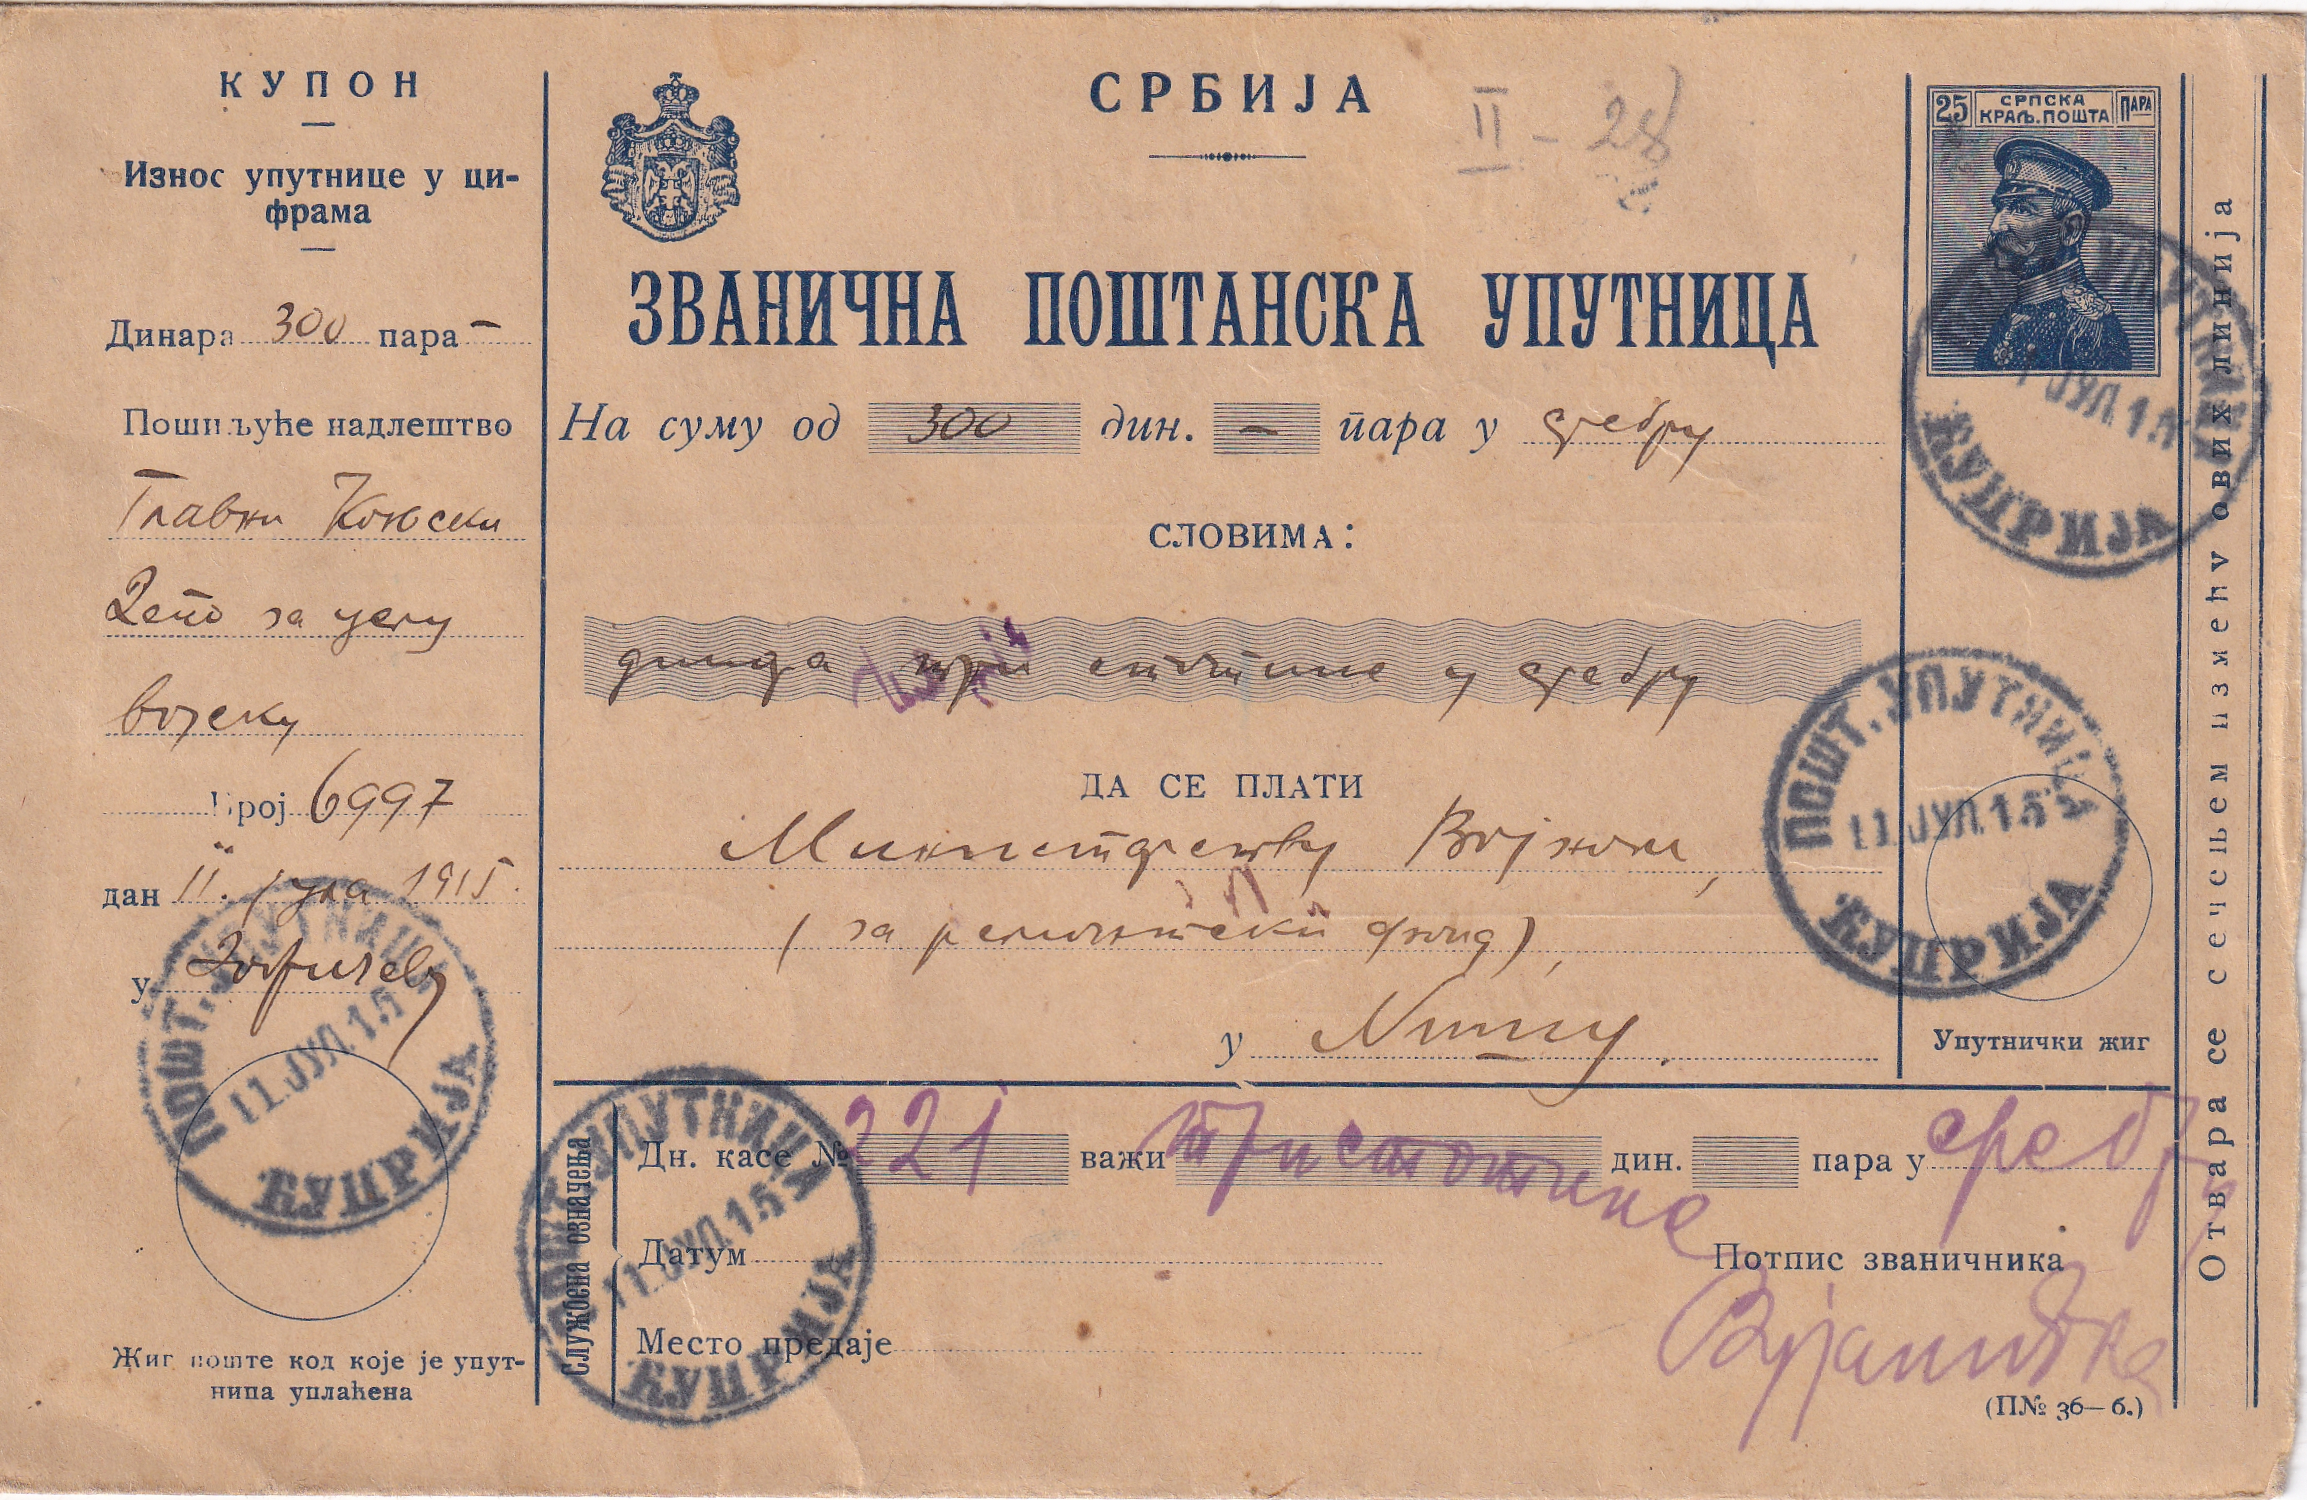 КУПОН
Износ упутнице у ци-
фрама
Динара 300 пара –
Пошиљуће надлештво
Главни Коњски
Депо за целу
војску
Број 6997
дан 11. јула 1915.
у
ПОШТ. УПУТНИЦА
11. ЈУЛ. 15
ЋУПРИЈА
Жиг поште код које је упут-
ница уплаћена
СРБИЈА
II - 28
ЗВАНИЧНА ПОШТАНСКА УПУТНИЦА
На суму од 300 дин. – пара у сребру
СЛОВИМА:
три стотине у сребру
ДА СЕ ПЛАТИ
Министарству Војном,
(за ремонтски фонд),
у Нишу.
Службена означења
Дн. касе № 221 важи три стотине дин. пара у сребру
Датум
Место предаје
Потпис званичника
(П№ 36—б.)
ПОШТ. УПУТНИЦА
11. ЈУЛ. 15
ЋУПРИЈА
25 СРПСКА КРАЉ. ПОШТА ПАРА
УПУТНИЦА
ЈУЛ. 15
ЋУПРИЈА
ПОШТ. УПУТНИЦА
11. ЈУЛ. 15
ЋУПРИЈА
Упутнички жиг
Отвара се сечењем између ових линија